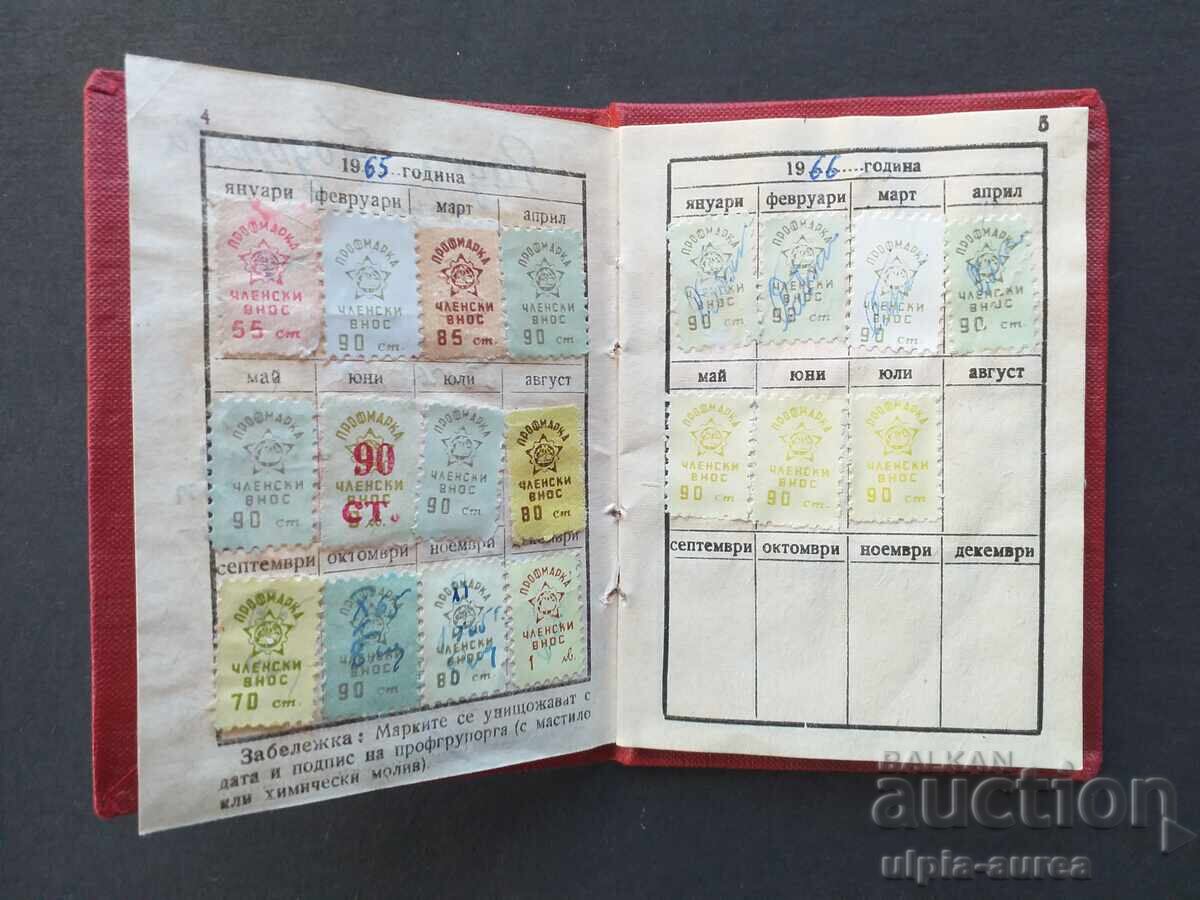 4
1965 година
януари февруари март април
ПРОФМАРКА ПРОФМАРКА ПРОФМАРКА ПРОФМАРКА
ЧЛЕНСКИ ЧЛЕНСКИ ЧЛЕНСКИ ЧЛЕНСКИ
ВНОС ВНОС ВНОС ВНОС
55 ст. 90 ст. 85 ст. 90 ст.
май юни юли август
ПРОФМАРКА ПРОФМАРКА ПРОФМАРКА ПРОФМАРКА
90
ЧЛЕНСКИ ЧЛЕНСКИ ЧЛЕНСКИ ЧЛЕНСКИ
ВНОС ВНОС ВНОС ВНОС
90 ст. СТ. 90 ст. 80 ст.
септември октомври ноември
ПРОФМАРКА ПРОФМАРКА ПРОФМАРКА ПРОФМАРКА
ЧЛЕНСКИ ЧЛЕНСКИ ЧЛЕНСКИ ЧЛЕНСКИ
ВНОС ВНОС ВНОС ВНОС
70 ст. 90 ст. 80 ст. 1 лв.
Забележка: Марките се унищожават с
дата и подпис на профгрупорга (с мастило
или химически молив).
5
1966 година
януари февруари март април
ПРОФМАРКА ПРОФМАРКА ПРОФМАРКА ПРОФМАРКА
ЧЛЕНСКИ ЧЛЕНСКИ ЧЛЕНСКИ ЧЛЕНСКИ
ВНОС ВНОС ВНОС ВНОС
90 ст. 90 ст. 90 ст. 90 ст.
май юни юли август
ПРОФМАРКА ПРОФМАРКА ПРОФМАРКА
ЧЛЕНСКИ ЧЛЕНСКИ ЧЛЕНСКИ
ВНОС ВНОС ВНОС
90 ст. 90 ст. 90 ст.
септември октомври ноември декември
BALKAN
auction
ulpia-aurea